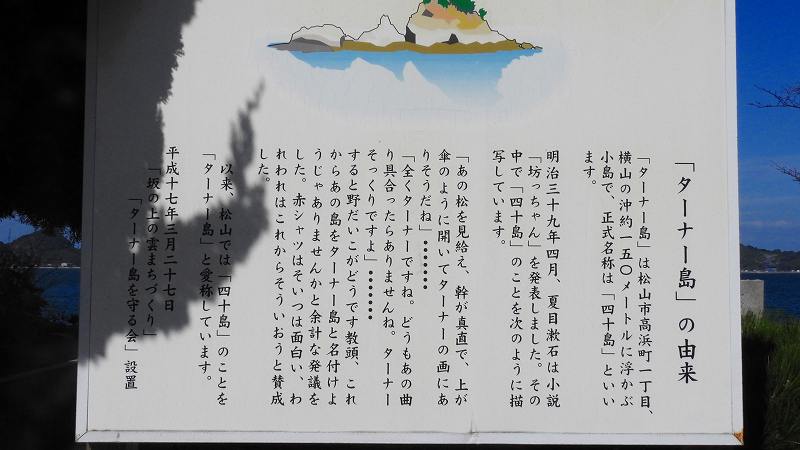 「ターナー島」の由来
「ターナー島」は松山市高浜町一丁目、
横山の沖約一五〇メートルに浮かぶ
小島で、正式名称は「四十島」といい
ます。
明治三十九年四月、夏目漱石は小説
「坊っちゃん」を発表しました。その
中で「四十島」のことを次のように描
写しています。
「あの松を見給え、幹が真直で、上が
傘のように開いてターナーの画にあ
りそうだね」●●●●●●●
「全くターナーですね。どうもあの曲
り具合ったらありませんね。ターナー
そっくりですよ」●●●●●●●
すると野だいこがどうです教頭、これ
からあの島をターナー島と名付けよ
うじゃありませんかと余計な発議を
した。赤シャツはそいつは面白い、わ
れわれはこれからそういおうと賛成
した。
以来、松山では「四十島」のことを
「ターナー島」と愛称しています。
平成十七年三月二十七日
「坂の上の雲まちづくり」
「ターナー島を守る会」設置